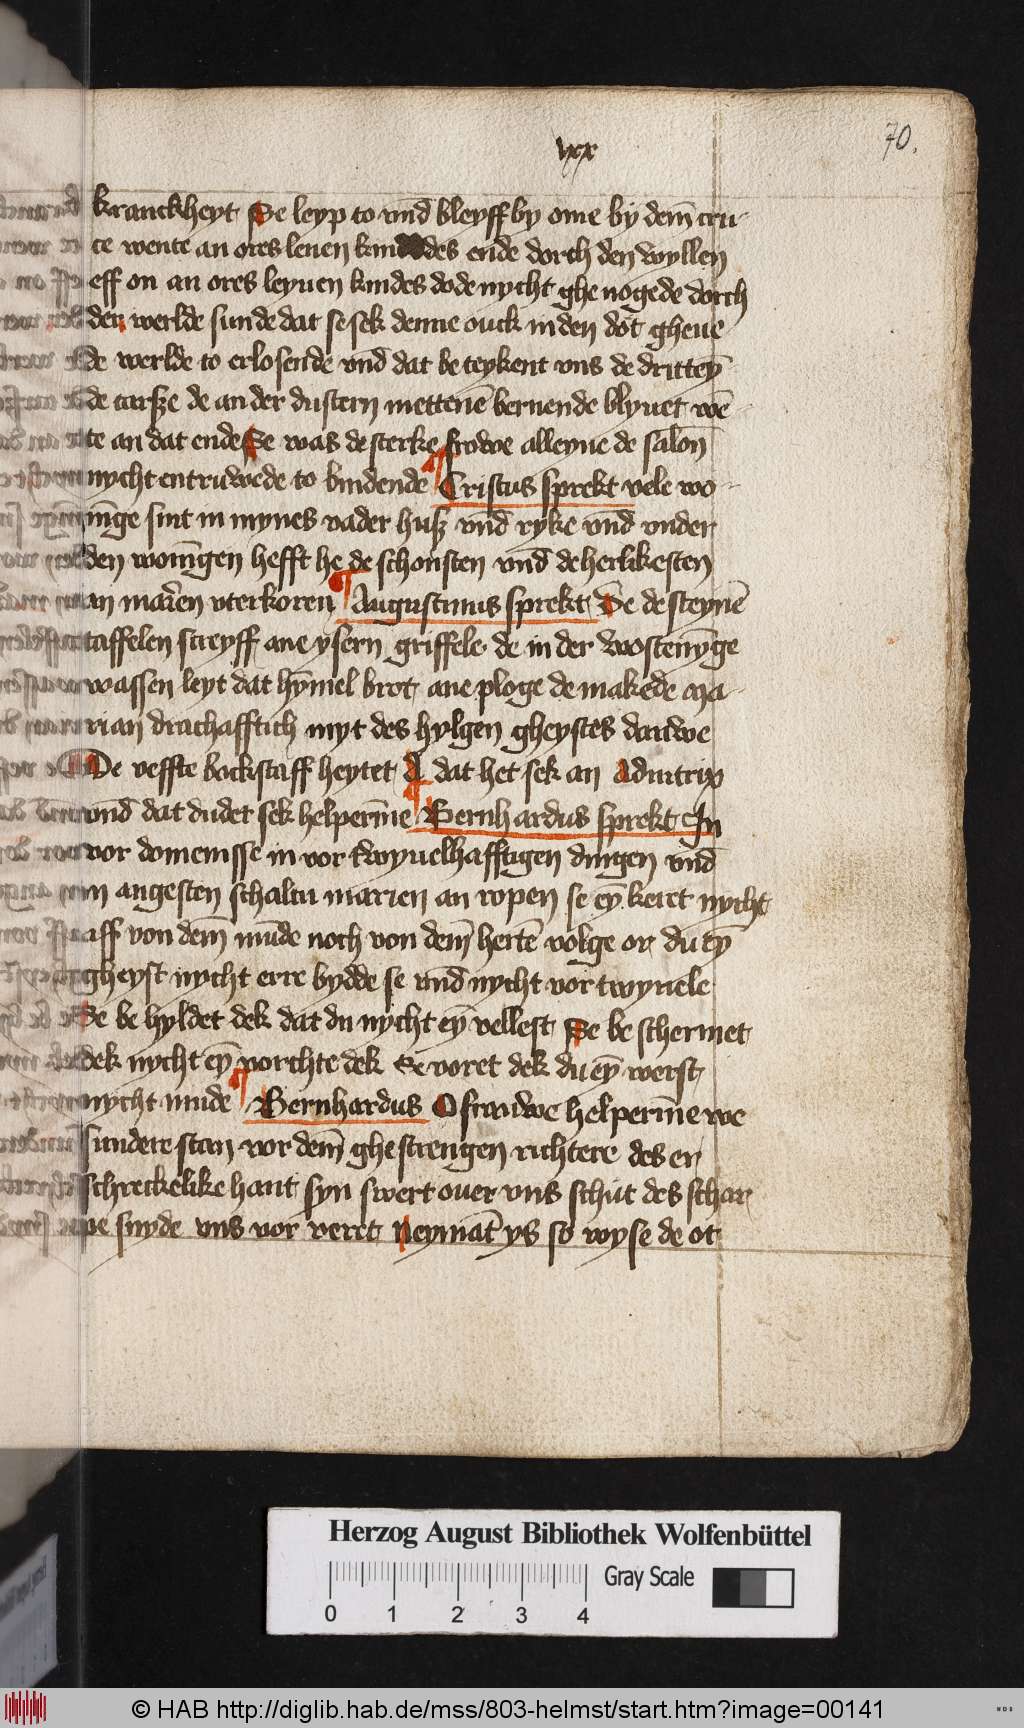 lxx
70.
kranckheyt Se leyp to vnd bleyff by ome by dem̄ cru-
ce wente an ores leuen kindes ende dorch den wyllen
eff on an ores leyuen kindes dode nycht ghe nogede dorch
der werlde sunde dat se sek denne ouck in den dot gheue
De werlde to erlosende vnd dat be teykent vns de dritteȳ
de tarsze de an der dustern mettenē bernende blyuet wē-
te an dat ende Se was de sterke frowe alleyne de salon̄
nycht entruwede to bindende Cristus sprekt vele wo-
nīge sint in mynes vader husz vnd ryke vnd vnder
den won̄gen hefft he de schonsten vnd de herlikesten
an mar̄en vterkoren Augustinus sprekt De de steynē
taffelen screyff ane ysern griffele de in der wostenȳge
wassen leyt dat hȳmel brot ane ploge de makede ma-
rian drachafftich myt des hylgen gheystes dauwe
De veffte bockstaff heytet A dat het sek an Adiutrix
vnd dat dudet sek helperīne Bernhardus sprekt In
vor domenisse in vor twyuelhafftigen dingen vnd
in angesten schaltu marien an ropen se eȳ keret nycht
aff von dem̄ mūde noch von dem̄ hertē volge or du eȳ
gheyst nycht erre bydde se vnd nycht vor twyuele
Se be hyldet dek dat du nycht eȳ vellest Se be schermet
dek nycht eȳ vorchte dek Se voret dek du eȳ werst
nycht mude Bernhardus O frauwe helperīne we
sundere stan vor dem̄ ghestrengen richtere des er
schreckelike hant syn swert ouer vns schut des schar
pe snyde vns vor veret Neymāt ys so wyse de ot
Herzog August Bibliothek Wolfenbüttel
Gray Scale
0 1 2 3 4
© HAB http://diglib.hab.de/mss/803-helmst/start.htm?image=00141